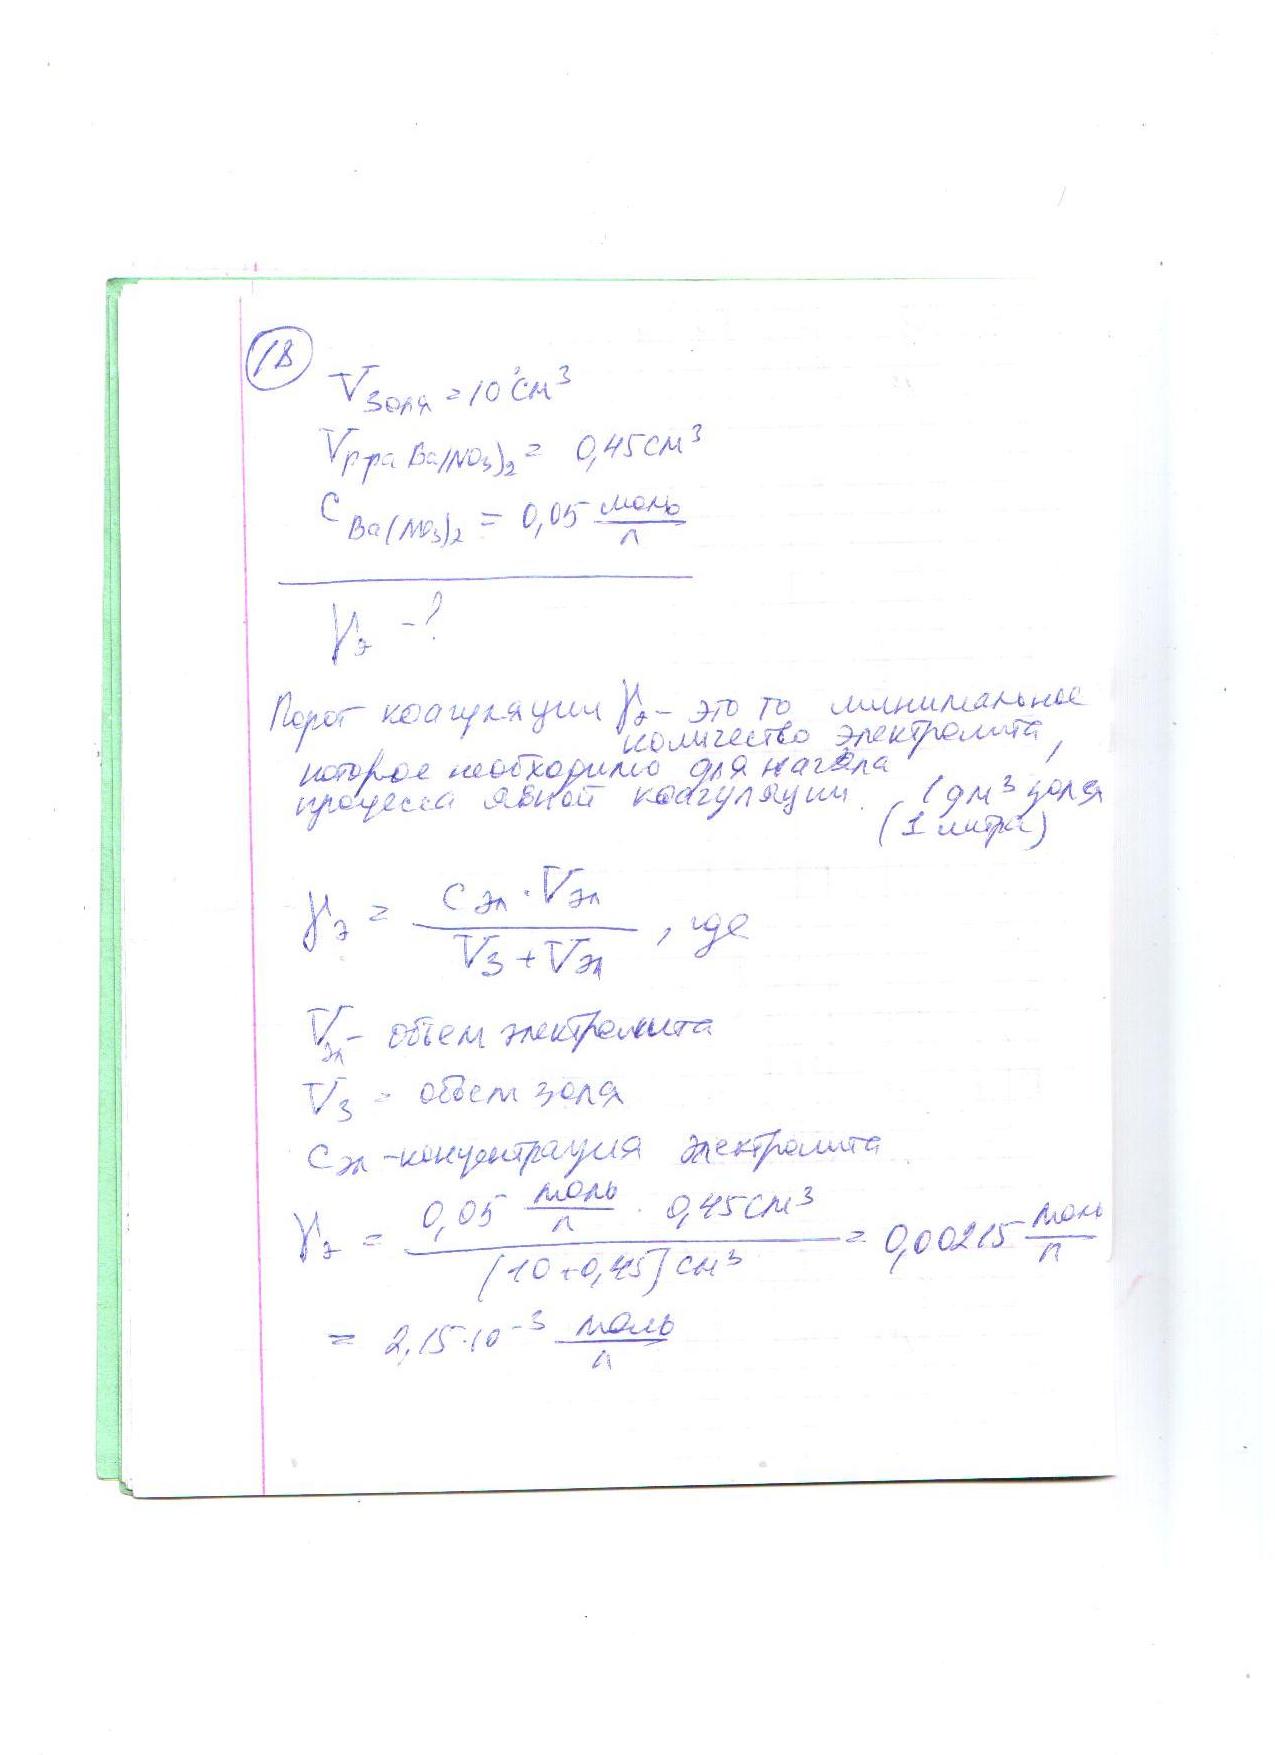 18
Vзоля = 10 см³
Vр-ра Ba(NO₃)₂ = 0,45 см³
C Ba(NO₃)₂ = 0,05 моль/л
γэ - ?
Порог коагуляции γэ – это то минимальное
количество электролита,
которое необходимо для начала
процесса явной коагуляции. 1 дм³ золя
(1 литра)
γэ = Cэл · Vэл / Vз + Vэл , где
Vэл – объем электролита
Vз = объем золя
Cэл – концентрация электролита
γэ = 0,05 моль/л · 0,45 см³ / (10 + 0,45) см³ = 0,00215 моль/л
= 2,15·10⁻³ моль/л